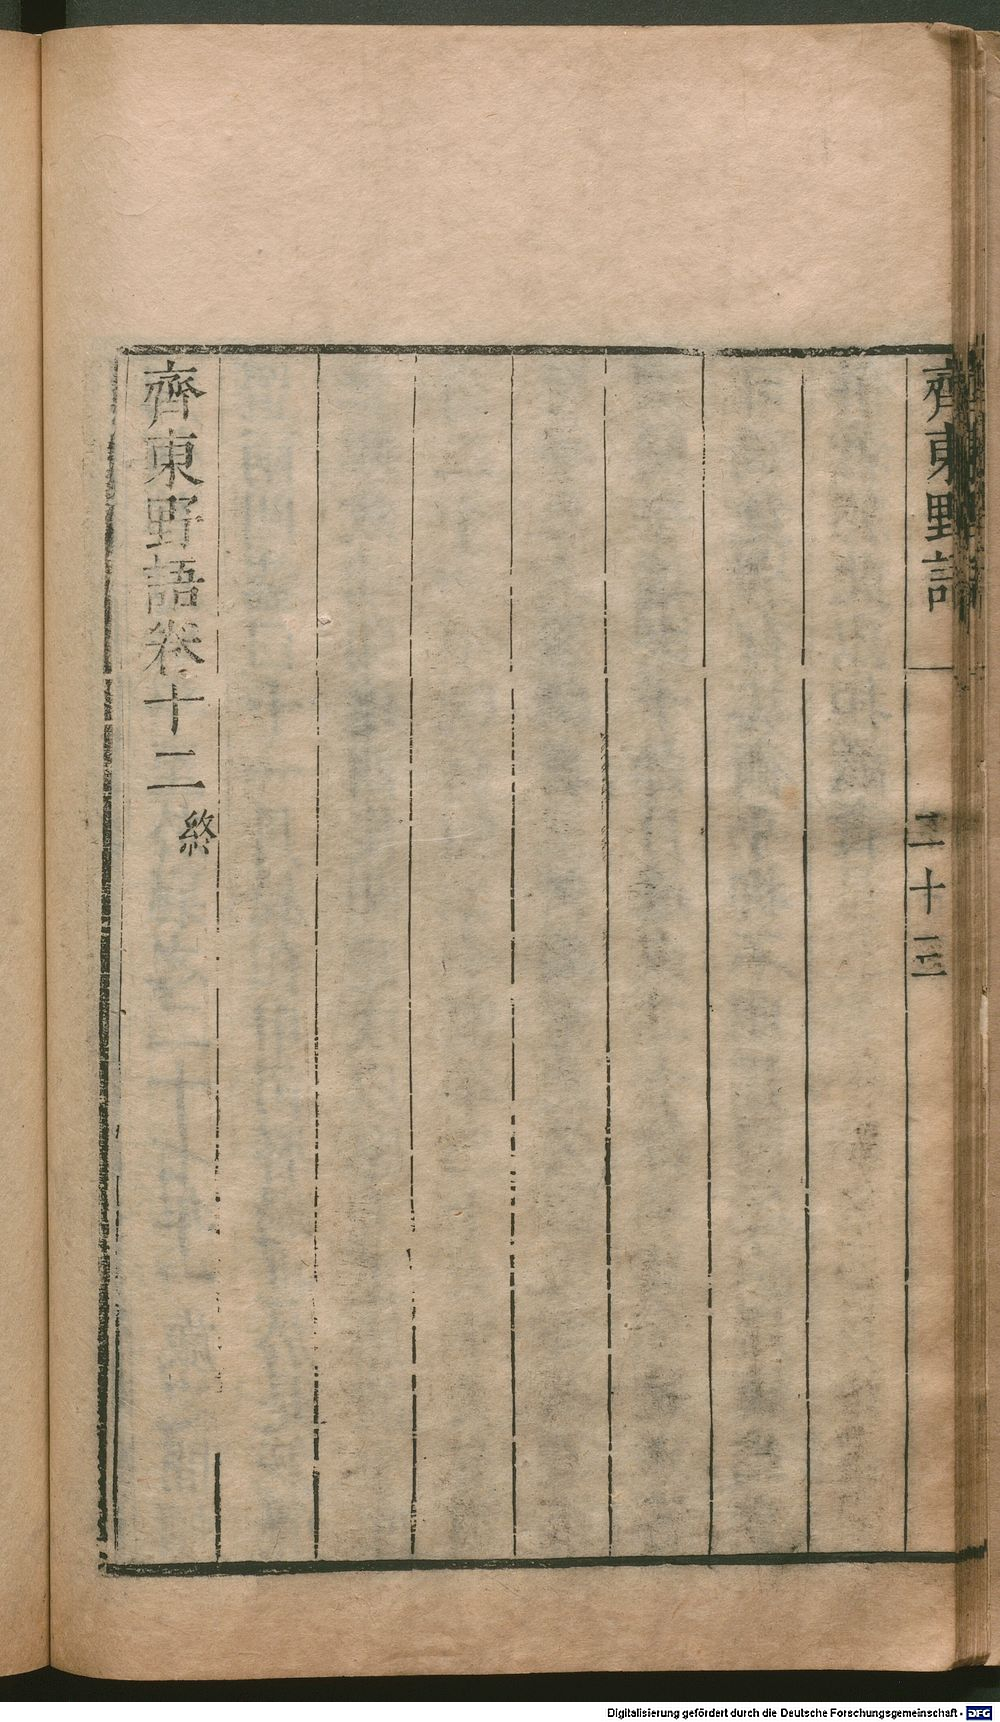 齊東野語
二十三
齊東野語卷十二終
Digitalisierung gefördert durch die Deutsche Forschungsgemeinschaft - DFG